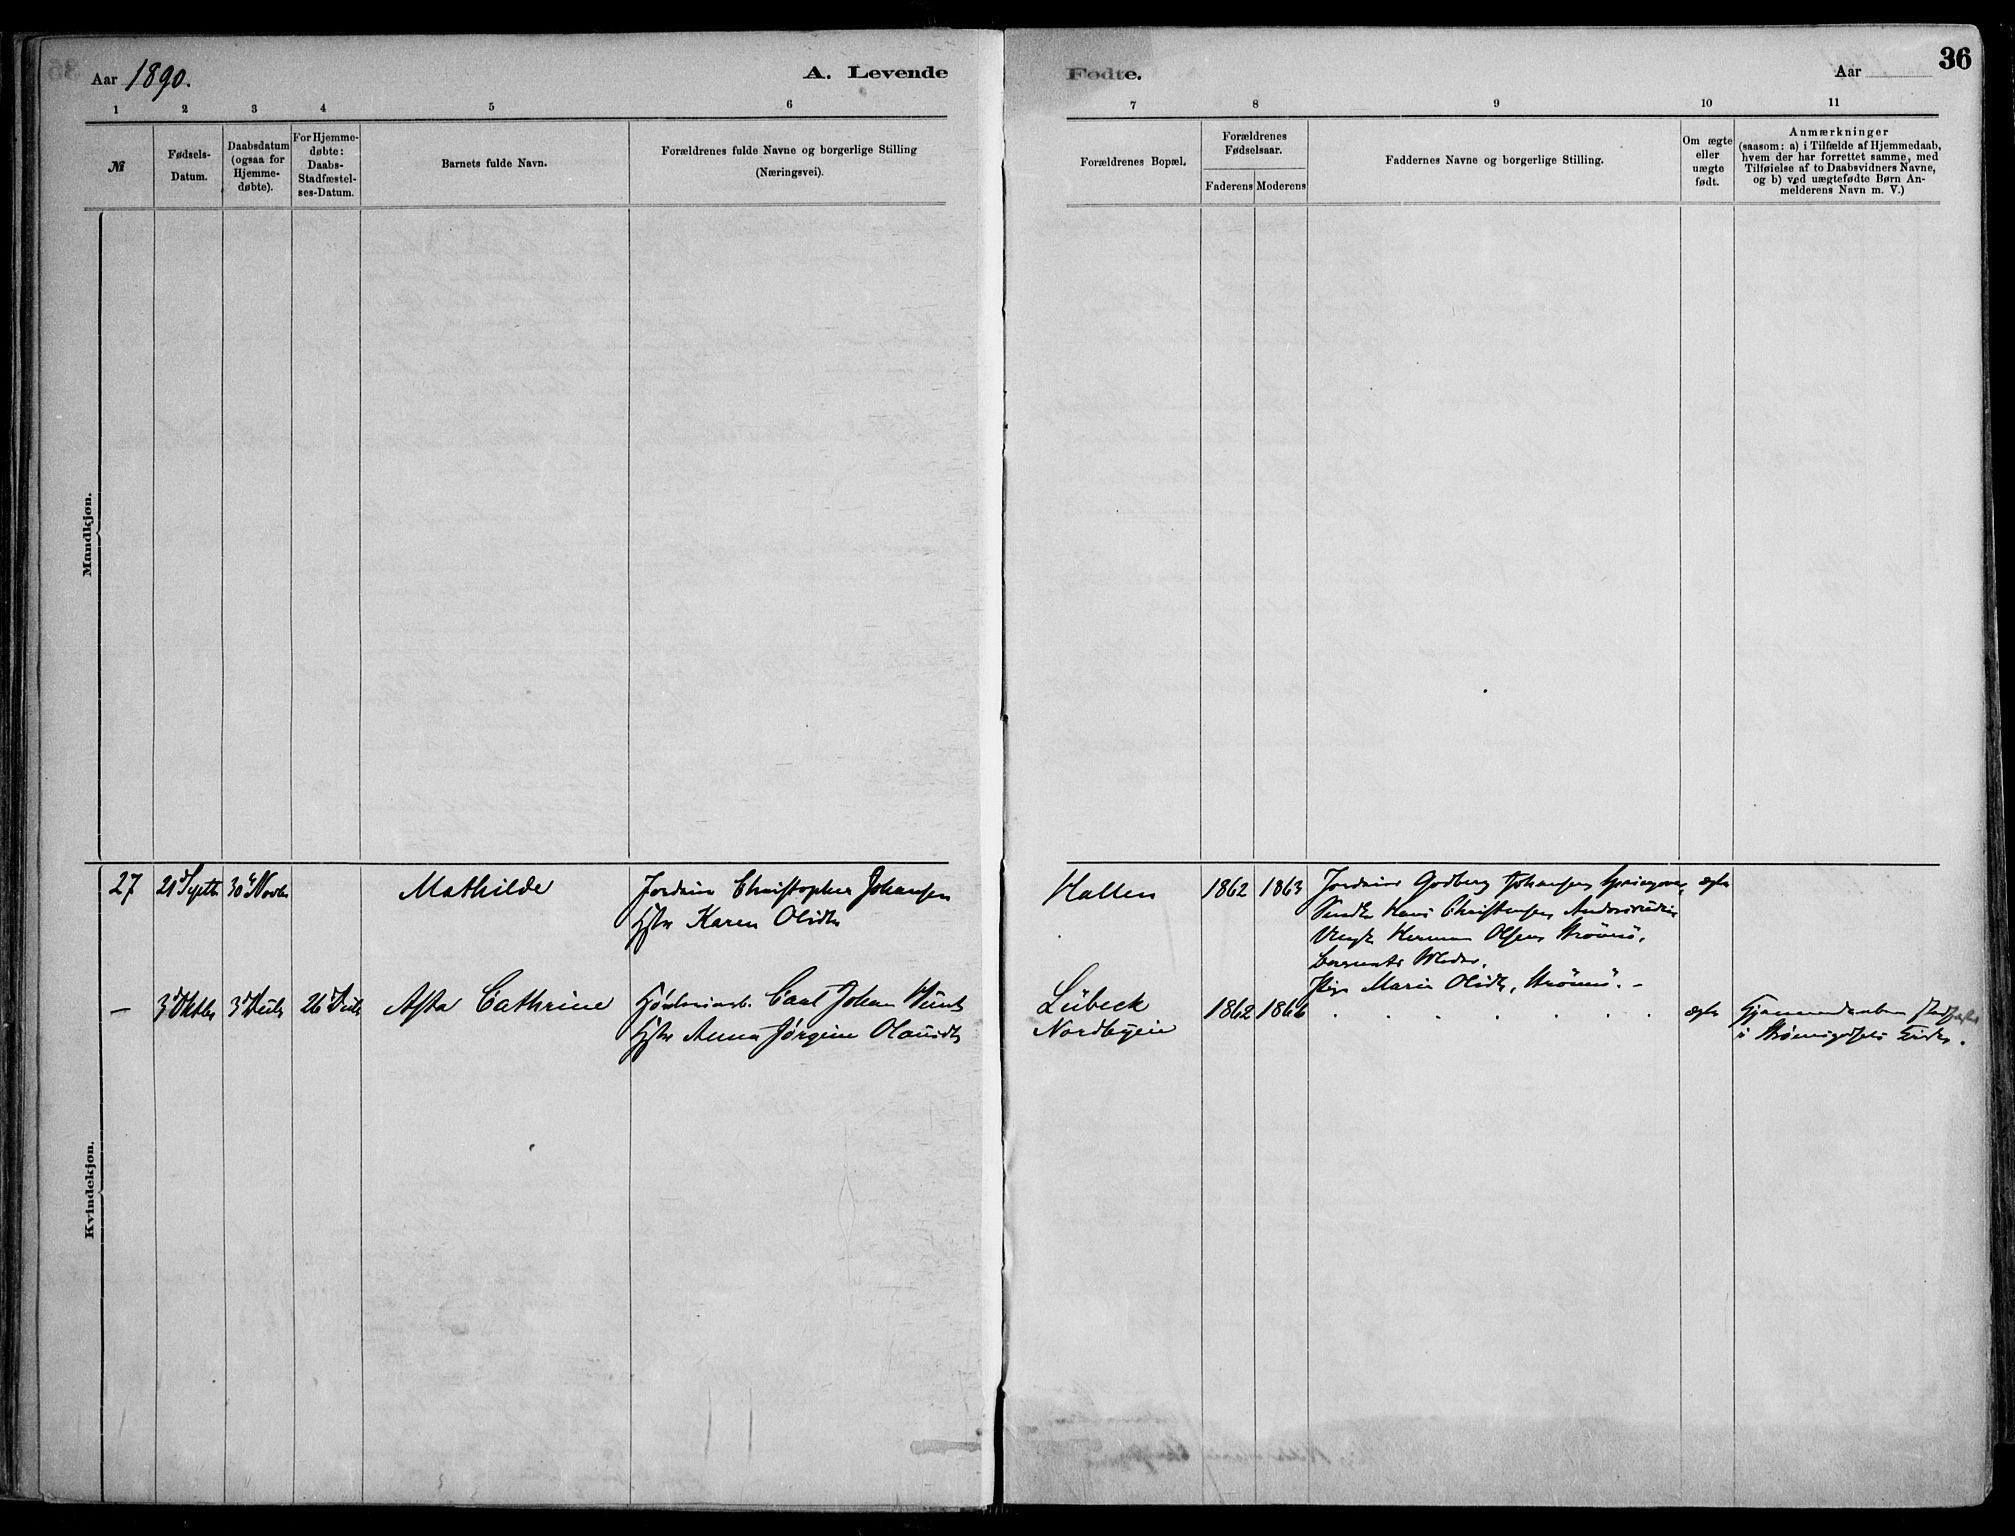 Aar 1890.
A. Levende
Fødte.
Aar
36
1 2 3 4 5 6
7 8 9 10 11
№
Fødsels-
Datum.
Daabsdatum
(ogsaa for
Hjemme-
døbte).
For Hjemme-
døbte:
Daabs-
Stadfæstel-
ses-Datum.
Barnets fulde Navn.
Forældrenes fulde Navne og borgerlige Stilling
(Næringsvei).
Forældrenes Bopæl.
Forældrenes
Fødselsaar.
Faderens
Moderens
Faddernes Navne og borgerlige Stilling.
Om ægte
eller
uægte
født.
Anmærkninger
(saasom: a) i Tilfælde af Hjemmedaab,
hvem der har forrettet samme, med
Tilføielse af to Daabsvidners Navne,
og b) ved uægtefødte Børn An-
melderens Navn m. V.)
Mandkjøn.
Kvindekjøn.
27
21 Septb
30 Novbr
Mathilde
Christopher Johansen
Hstr Karen
Hallen
1862
1863
Godberg Johansen
Hans Christensen
Herman Olsen Strømsø,
Barnets Moder,
Pige Marie Strømsø. -
ægte
—
3 Oktbr
3 Decbr
26 Decbr
Asta Cathrine
Carl Johan
Hstr Anna Jørgine
Lübeck
Nordbyein
1862
1866
. . . . . . .
ægte
i Strømsgodsets